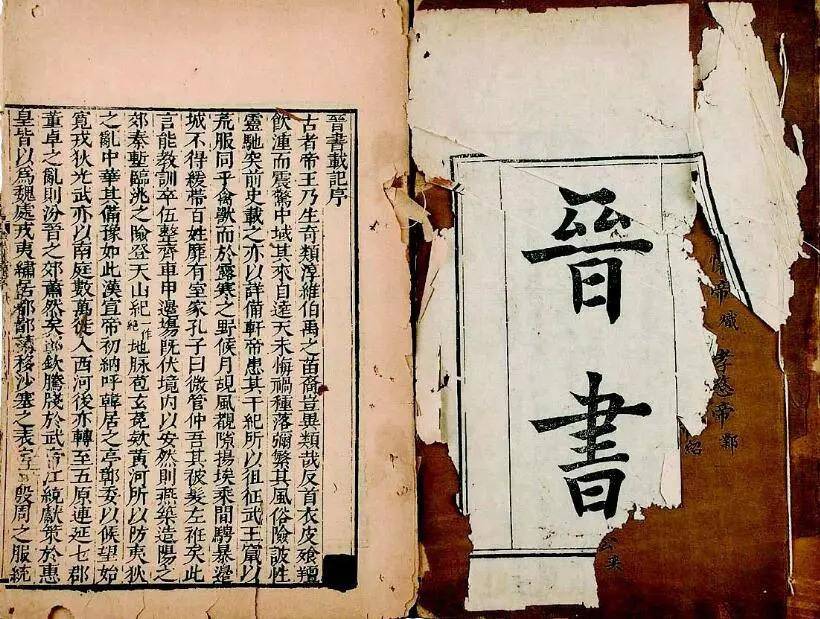 晉書
帝熾 孝愍帝鄴
紹
晉書載記序
古者帝王乃生奇類淳維伯禹之苗裔豈異類哉反首衣皮飡羶
飲湩而震驚中域其來自逺天未悔禍種落彌繁其風俗險詖性
靈馳突前史載之亦以詳備軒帝患其干紀所以徂征武王竄以
荒服同乎禽獸而於露寒之野候月覘風覩隙揚埃乘間騁暴邉
城不得緩帶百姓靡有室家孔子曰微管仲吾其被髮左衽矣此
言能教訓卒伍整齊車甲邉塲既伏境内以安然則燕築造陽之
郊秦塹臨洮之險登天山紀一作絕地脉苞玄菟欵黃河所以防夷狄
之亂中華其備豫如此漢宣帝初納呼韓居之亭鄣委以候望始
寛戎狄光武亦以南庭數萬徙入西河後亦轉至五原連延七郡
董卓之亂則汾晉之郊蕭然矣郭欽騰牋於武帝江統獻策於惠
皇皆以爲魏處戎夷繡居都鄙請移沙塞之表定殷周之服統